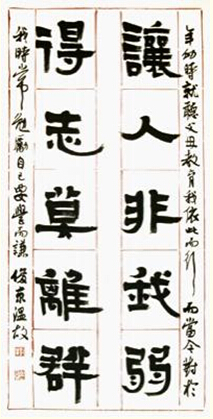 讓人非我弱
得志莫離群
年幼時就聽父母教育我依此而行而當今對於
我時常勉勵自己要譽而謙